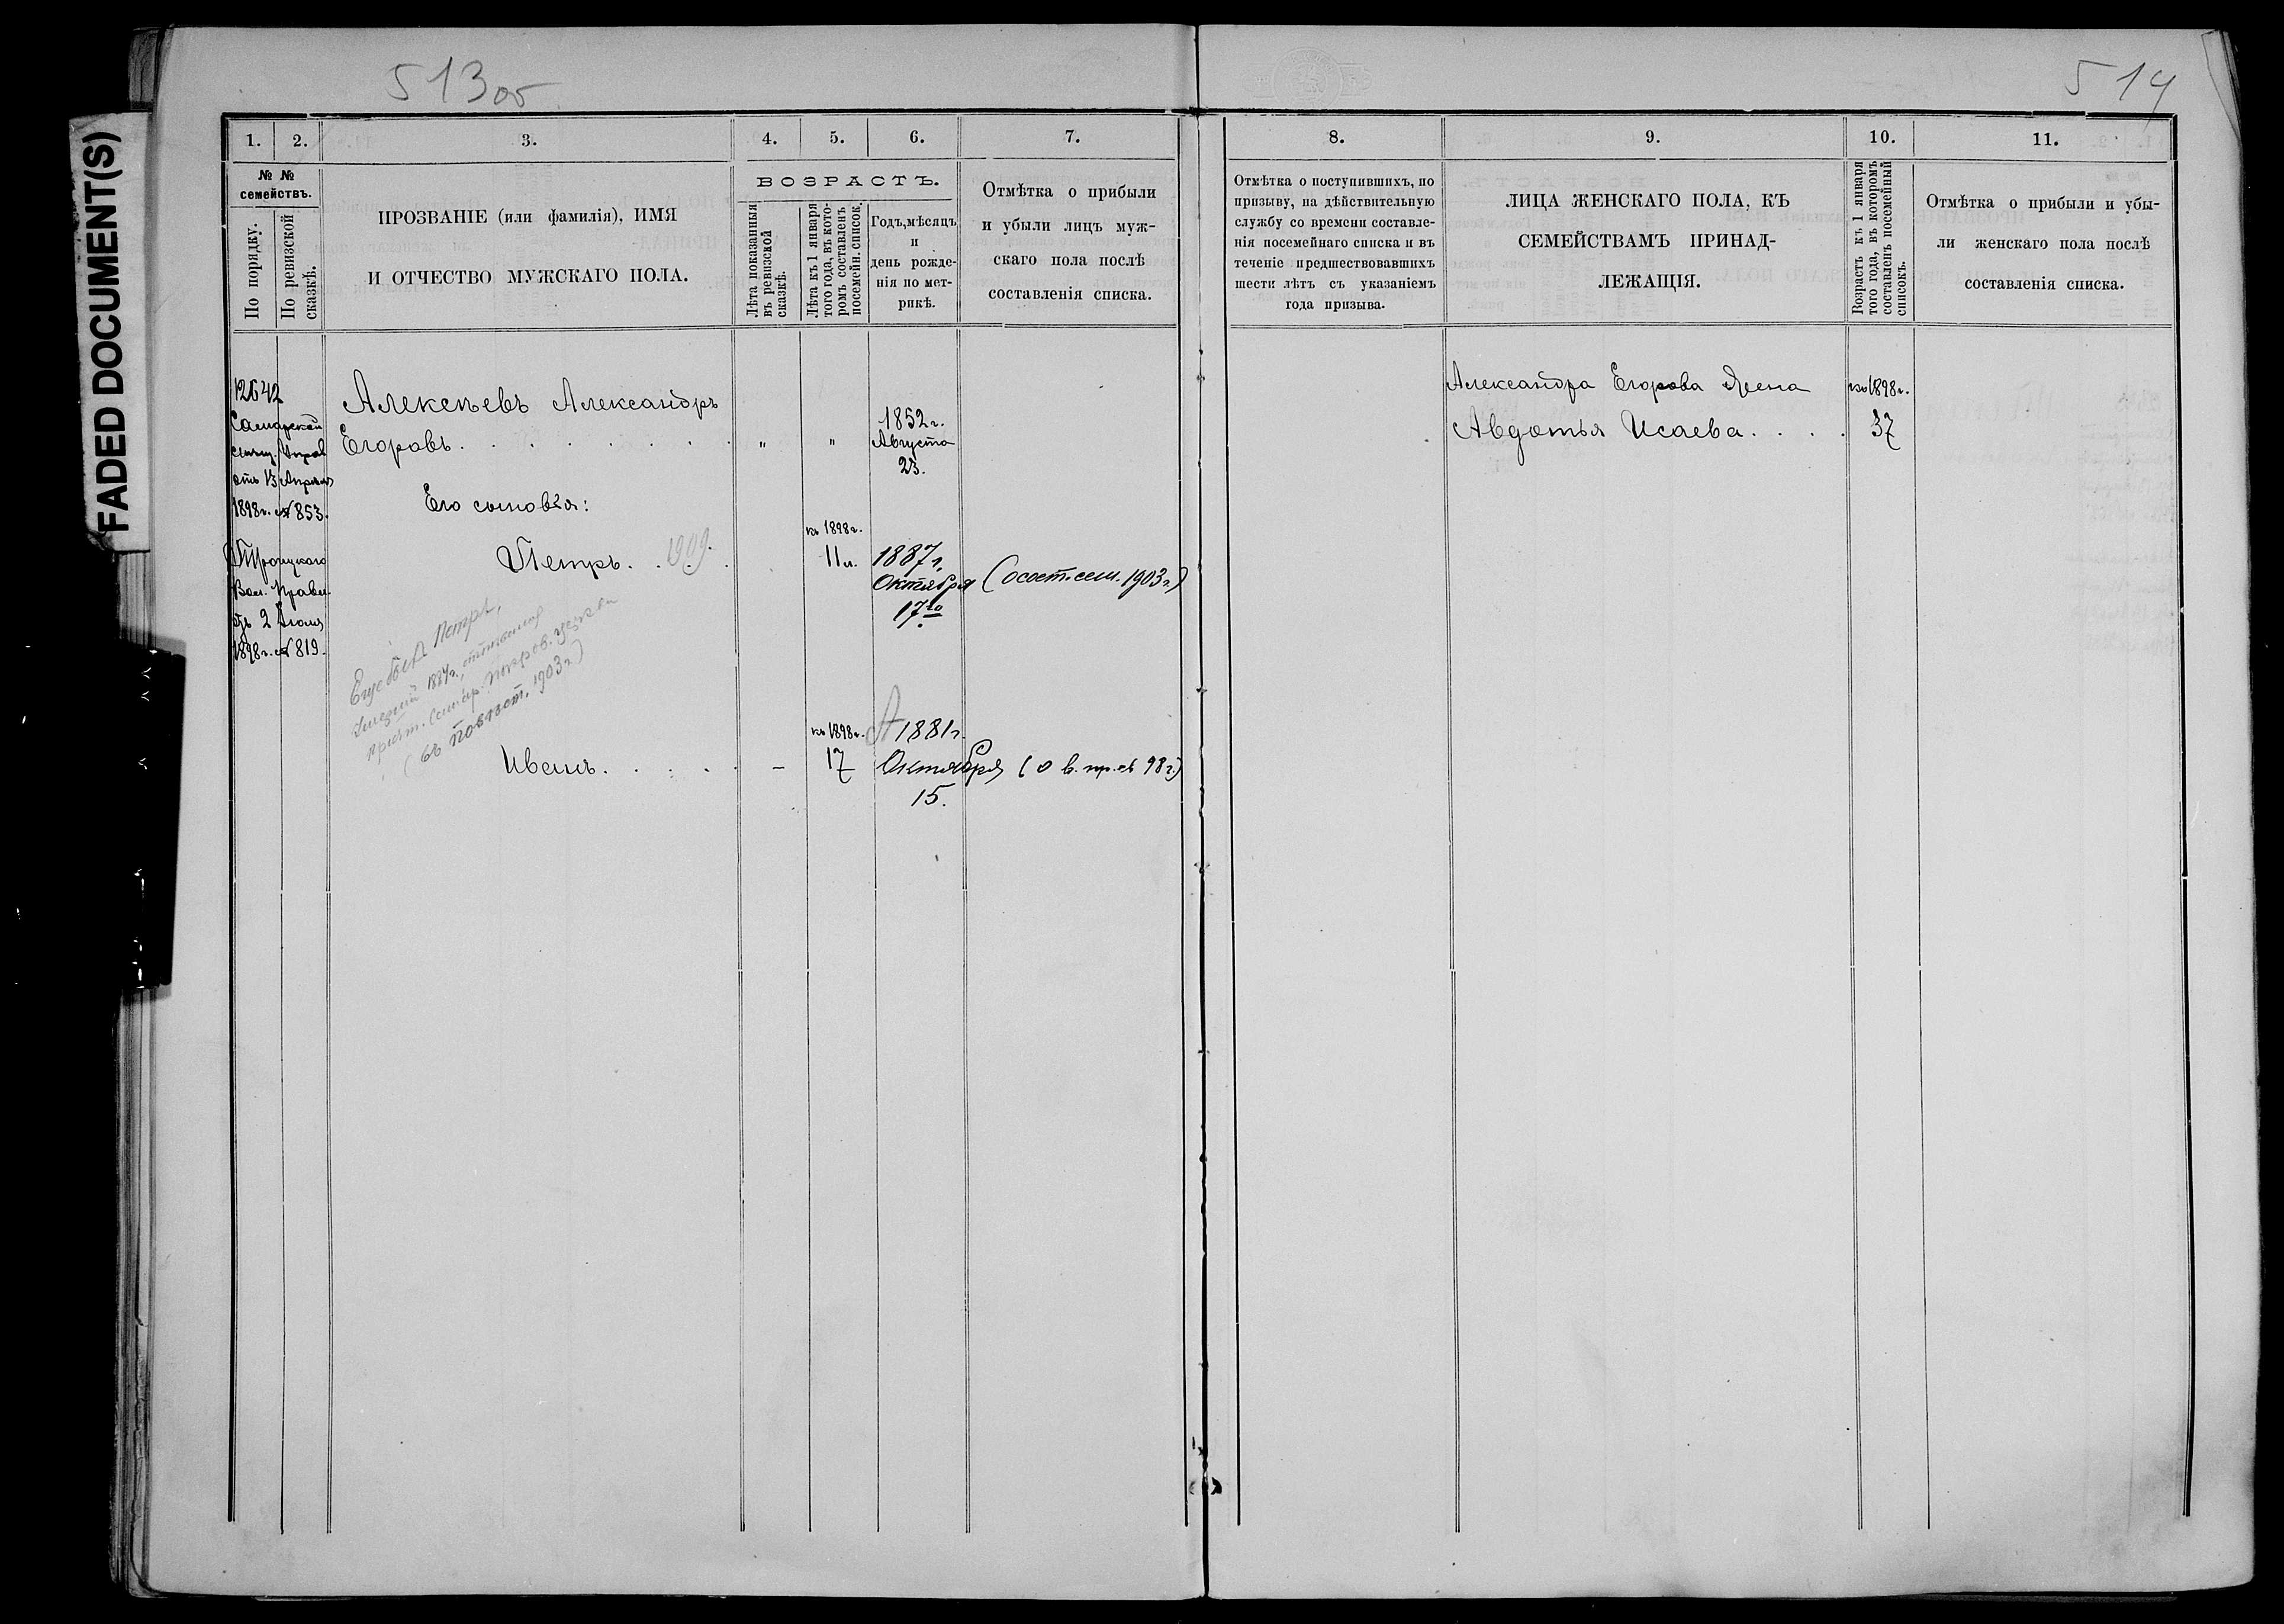 FADED DOCUMENT(S)
513 об
514
1. 2. 3. 4. 5. 6. 7.
№ №
семействъ.
По порядку.
По ревизской
сказкѣ.
ПРОЗВАНІЕ (или фамилія), ИМЯ
И ОТЧЕСТВО МУЖСКАГО ПОЛА.
ВОЗРАСТЪ.
Лѣта показанныя
въ ревизской
сказкѣ.
Лѣта къ 1 января
того года, въ кото-
ромъ составленъ
посемейн. список.
Годъ, мѣсяцъ
и
день рожде-
нія по мет-
рикѣ.
Отмѣтка о прибыли
и убыли лицъ муж-
скаго пола послѣ
составленія списка.
12642
Самарской
мѣщ. Управ
отъ 13 Апрѣля
1898 г. № 853.
Троицкаго
Вол. Правл.
отъ 2 Іюля
1898 г. № 819.
Алексѣевъ Александръ
Егоровъ. . . . . . . . " "
1852 г.
Августа
23.
Его сыновья:
Петръ. . 1909.
къ 1898 г.
11 л.
1887 г.
Октября
17го
(о сост. сем. 1903 г.)
Еще былъ Петръ,
умерший 1884 г.,
(въ 1903 г.)
Иванъ. . . . . –
къ 1898 г.
17
1881 г.
Октября
15.
98 г.)
8. 9. 10. 11.
Отмѣтка о поступившихъ, по
призыву, на дѣйствительную
службу со времени составле-
нія посемейнаго списка и въ
теченіе предшествовавшихъ
шести лѣтъ съ указаніемъ
года призыва.
ЛИЦА ЖЕНСКАГО ПОЛА, КЪ
СЕМЕЙСТВАМЪ ПРИНАД-
ЛЕЖАЩІЯ.
Возрастъ къ 1 января
того года, въ которомъ
составленъ посемейный
списокъ.
Отмѣтка о прибыли и убы-
ли женскаго пола послѣ
составленія списка.
Александра Егорова жена
Авдотья Исаева. . . .
къ 1898 г.
37